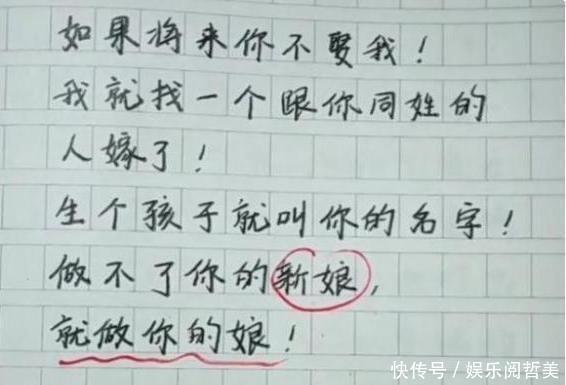 如果将来你不娶我！
我就找一个跟你同姓的
人嫁了！
生个孩子就叫你的名字！
做不了你的新娘，
就做你的娘！
快传号／娱乐阅哲美